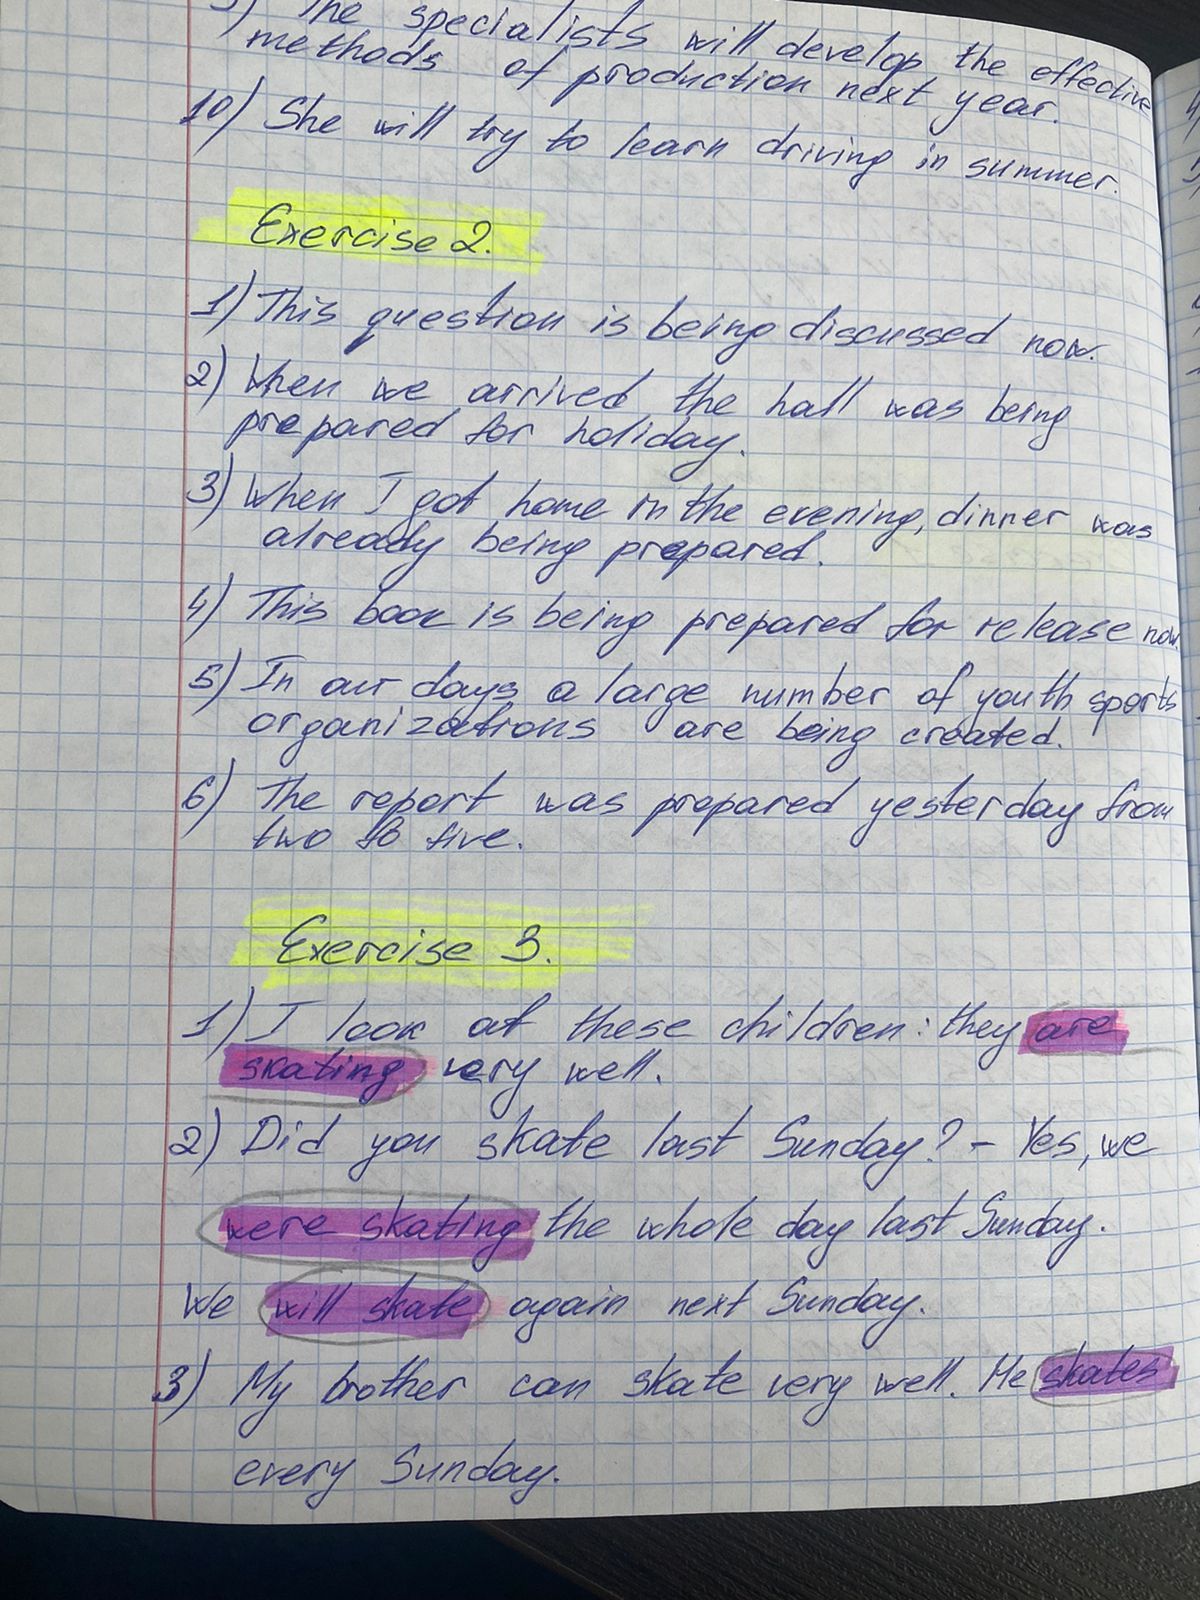 The specialists will develop the effective
methods of production next year.
10) She will try to learn driving in summer.
Exercise 2.
1) This question is being discussed now.
2) When we arrived the hall was being
prepared for holiday.
3) When I got home in the evening, dinner was
already being prepared.
4) This book is being prepared for release now.
5) In our days a large number of youth sports
organizations are being created.
6) The report was prepared yesterday from
two to five.
Exercise 3.
1) I look at these children: they are
skating very well.
2) Did you skate last Sunday? - Yes, we
were skating the whole day last Sunday.
We will skate again next Sunday.
3) My brother can skate very well. He skates
every Sunday.